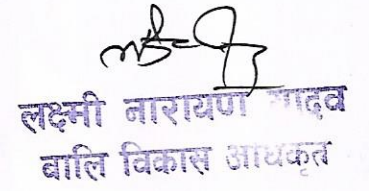 लक्ष्मी नारायण यादव
वालि विकास अधिकृत